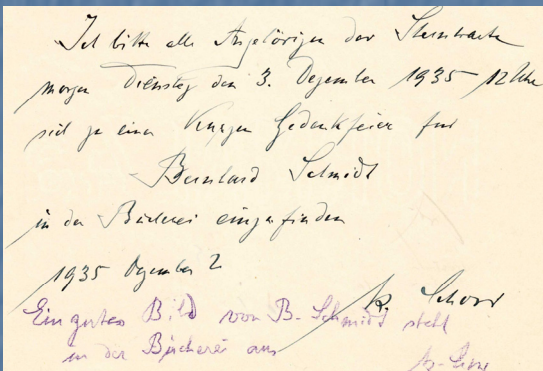 Ich bitte alle Angehörigen der Sternwarte
morgen Dienstag den 3. Dezember 1935 12 Uhr
sich zu einer kurzen Gedenkfeier für
Bernhard Schmidt
in der Bücherei einzufinden
1935 Dezember 2
R. Schorr
Ein gutes Bild von B. Schmidt steht
in der Bücherei aus